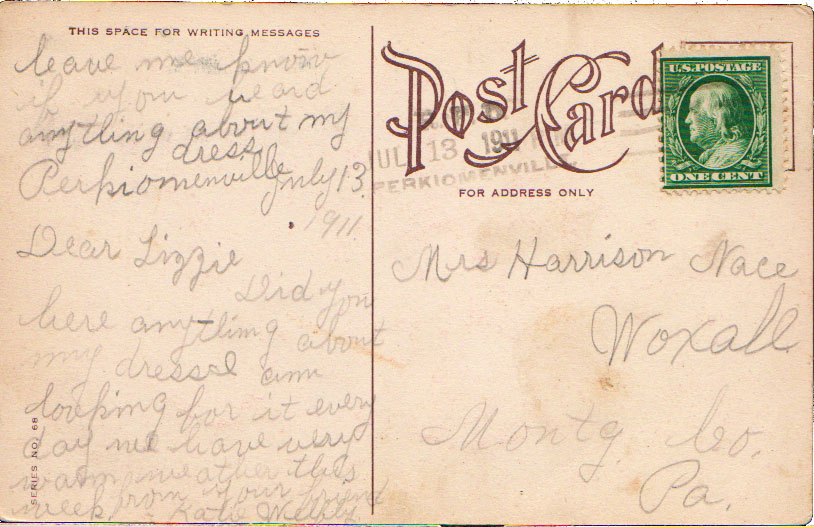 THIS SPACE FOR WRITING MESSAGES
leave me know
if you heard
anything about my
dress
Perkiomenville July 13
1911
Dear Lizzie
Did you
here anything about
my dress I am
looking for it every
day we have very
warm weather this
week from your friend
Katie
SERIES NO. 68
Post Card
JUL 13 1911
PERKIOMENVILLE,
U.S. POSTAGE
ONE CENT
FOR ADDRESS ONLY
Mrs Harrison Nace
Woxall
Montg Co.
Pa.